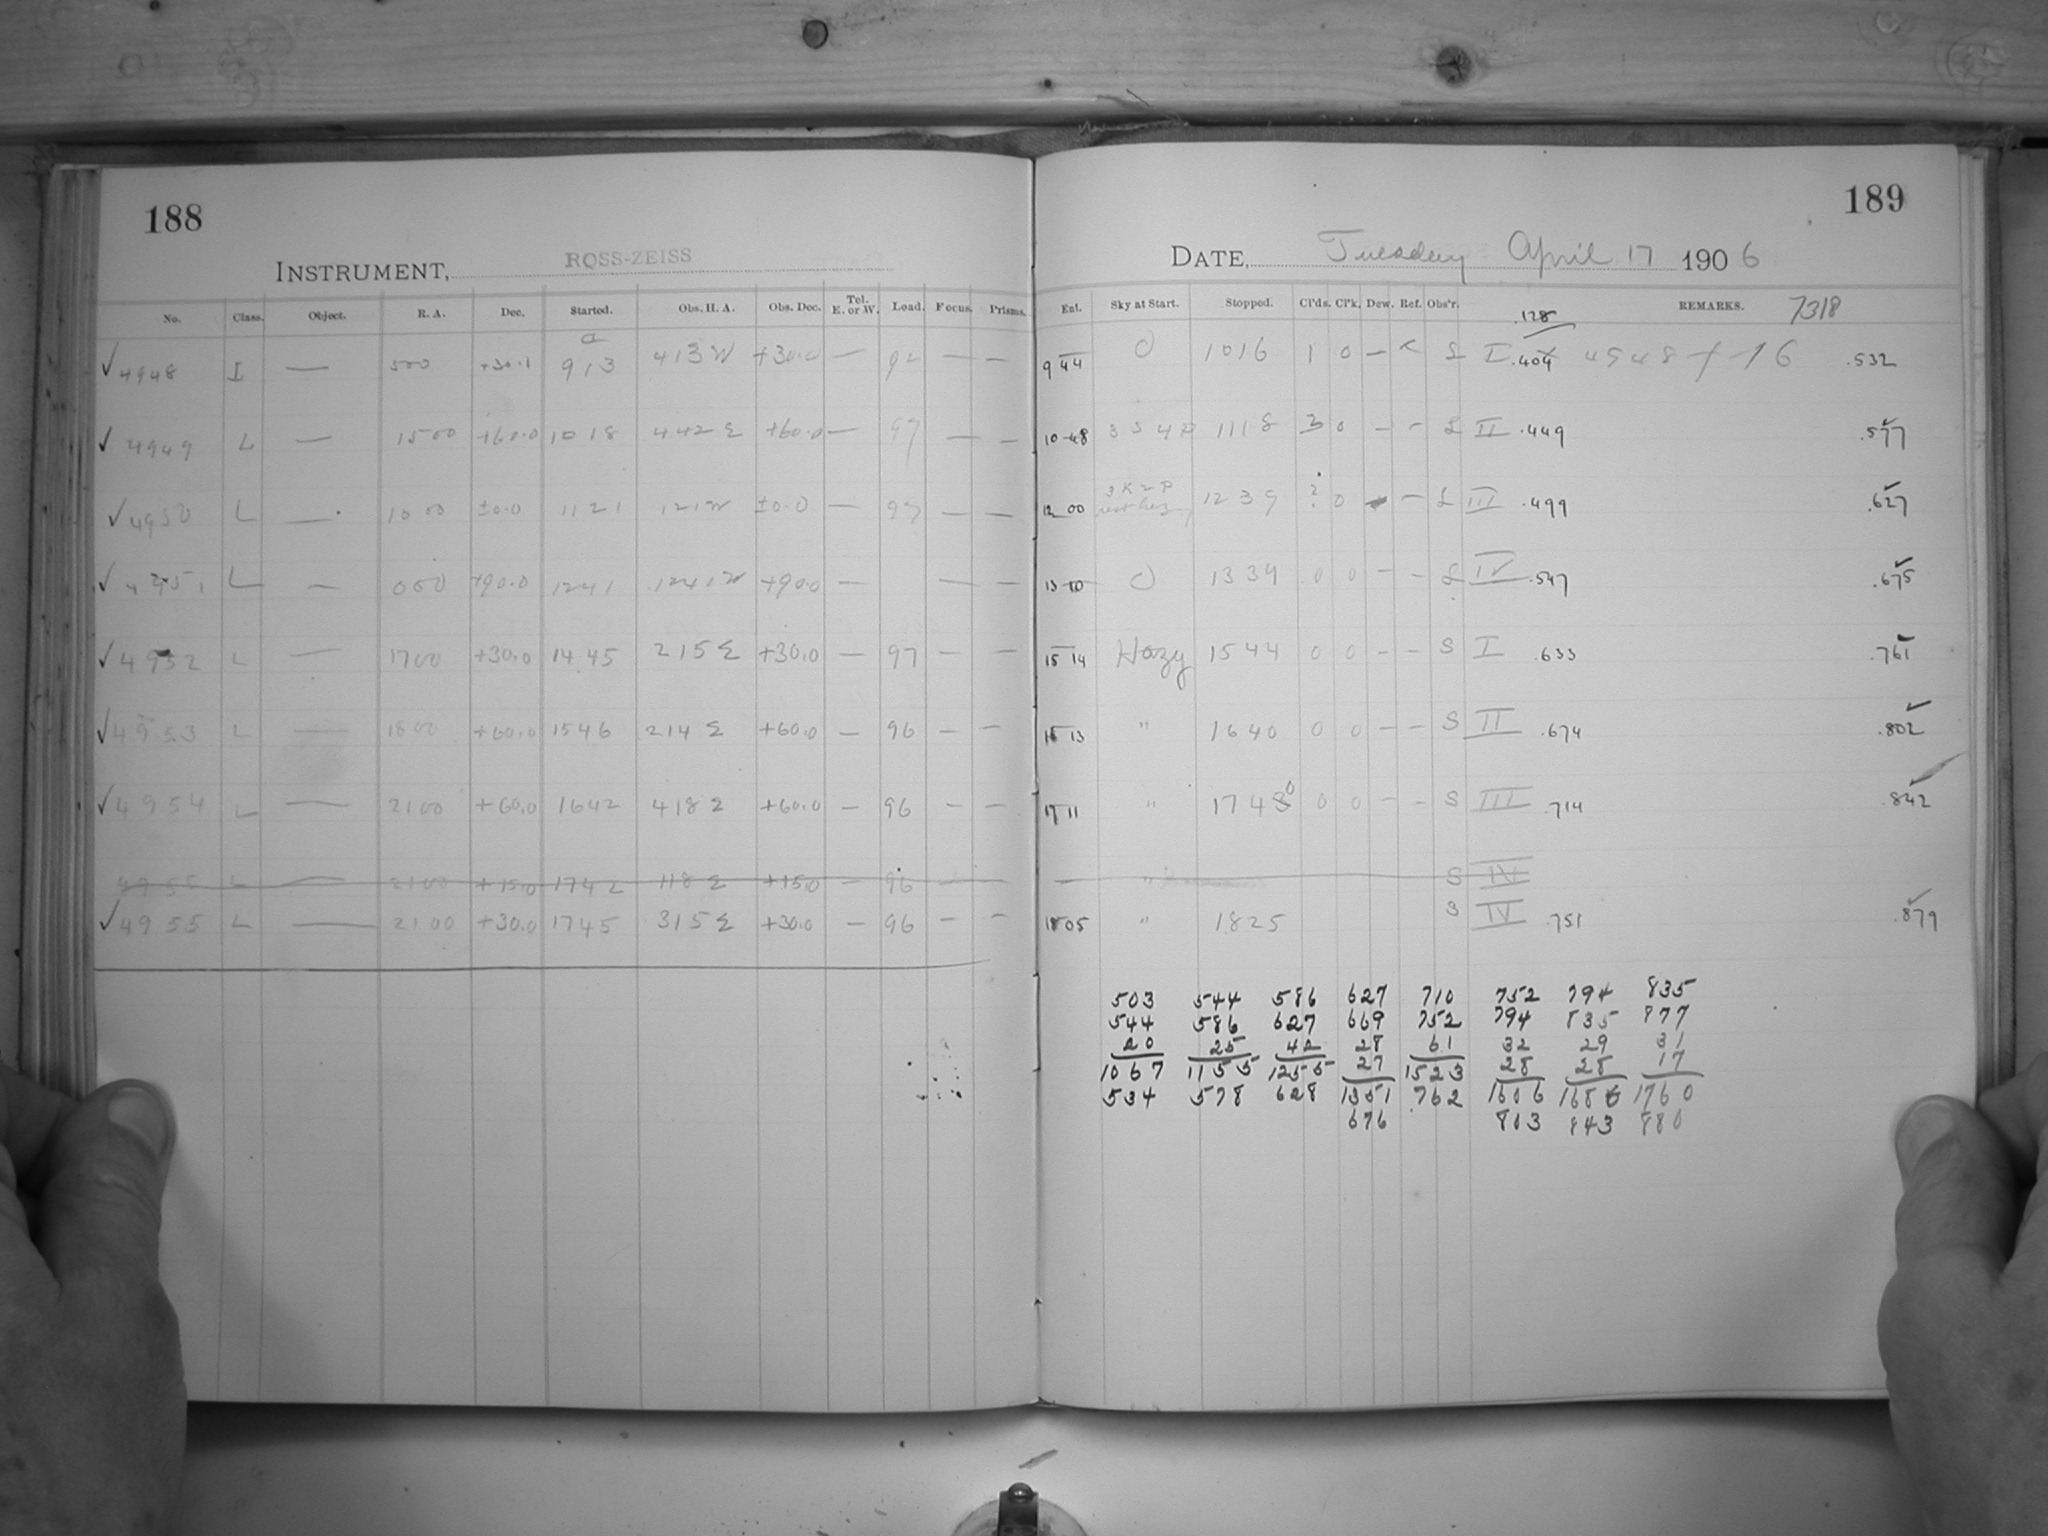 188
INSTRUMENT, ROSS-ZEISS
No. Class. Object. R. A. Dec. Started. Obs. H. A. Obs. Dec. Tel. E. or W. Load. Focus. Prisms.
✓4948 I — 500 +30.1 913 413W +30.0 — 92 — —
✓4949 L — 1500 +60.0 1018 442 E +60.0 — 97 — —
✓4950 L — 1000 ±0.0 1121 121W ±0.0 — 97 — —
✓4951 L — 000 +90.0 1241 1241W +90.0 — — —
✓4952 L — 1700 +30.0 1445 215 E +30.0 — 97 — —
✓4953 L — 1800 +60.0 1546 214 E +60.0 — 96 — —
✓4954 L — 2100 +60.0 1642 418 E +60.0 — 96 — —
4955 L — 2100 +15.0 1742 118 E +15.0 — 96 — —
✓4955 L — 2100 +30.0 1745 315 E +30.0 — 96 — —
189
DATE, Tuesday April 17 1906
Ent. Sky at Start. Stopped. Cl'ds. Cl'k. Dew. Ref. Obs'r. REMARKS. 7318
.128
9 44 0 1016 1 0 — < L I .404 4948 .532
10 48 3 S 4 P 1118 3 0 — — L II .449 .577
12 00 3 K 2 P 1239 ? 0 — — L III .499 .627
13 10 0 1339 0 0 — — L IV .547 .675
15 14 Hazy 1544 0 0 — — S I .633 .761
16 13 " 1640 0 0 — — S II .674 .802
17 11 " 1740 0 0 — — S III .714 .842
— " S IV
18 05 " 1825 S IV .751 .879
503 544 586 627 710 752 794 835
544 586 627 669 752 794 835 877
20 25 42 28 61 32 29 31
1067 1155 1255 27 1523 28 28 17
534 578 628 1351 762 1606 1686 1760
676 803 843 880